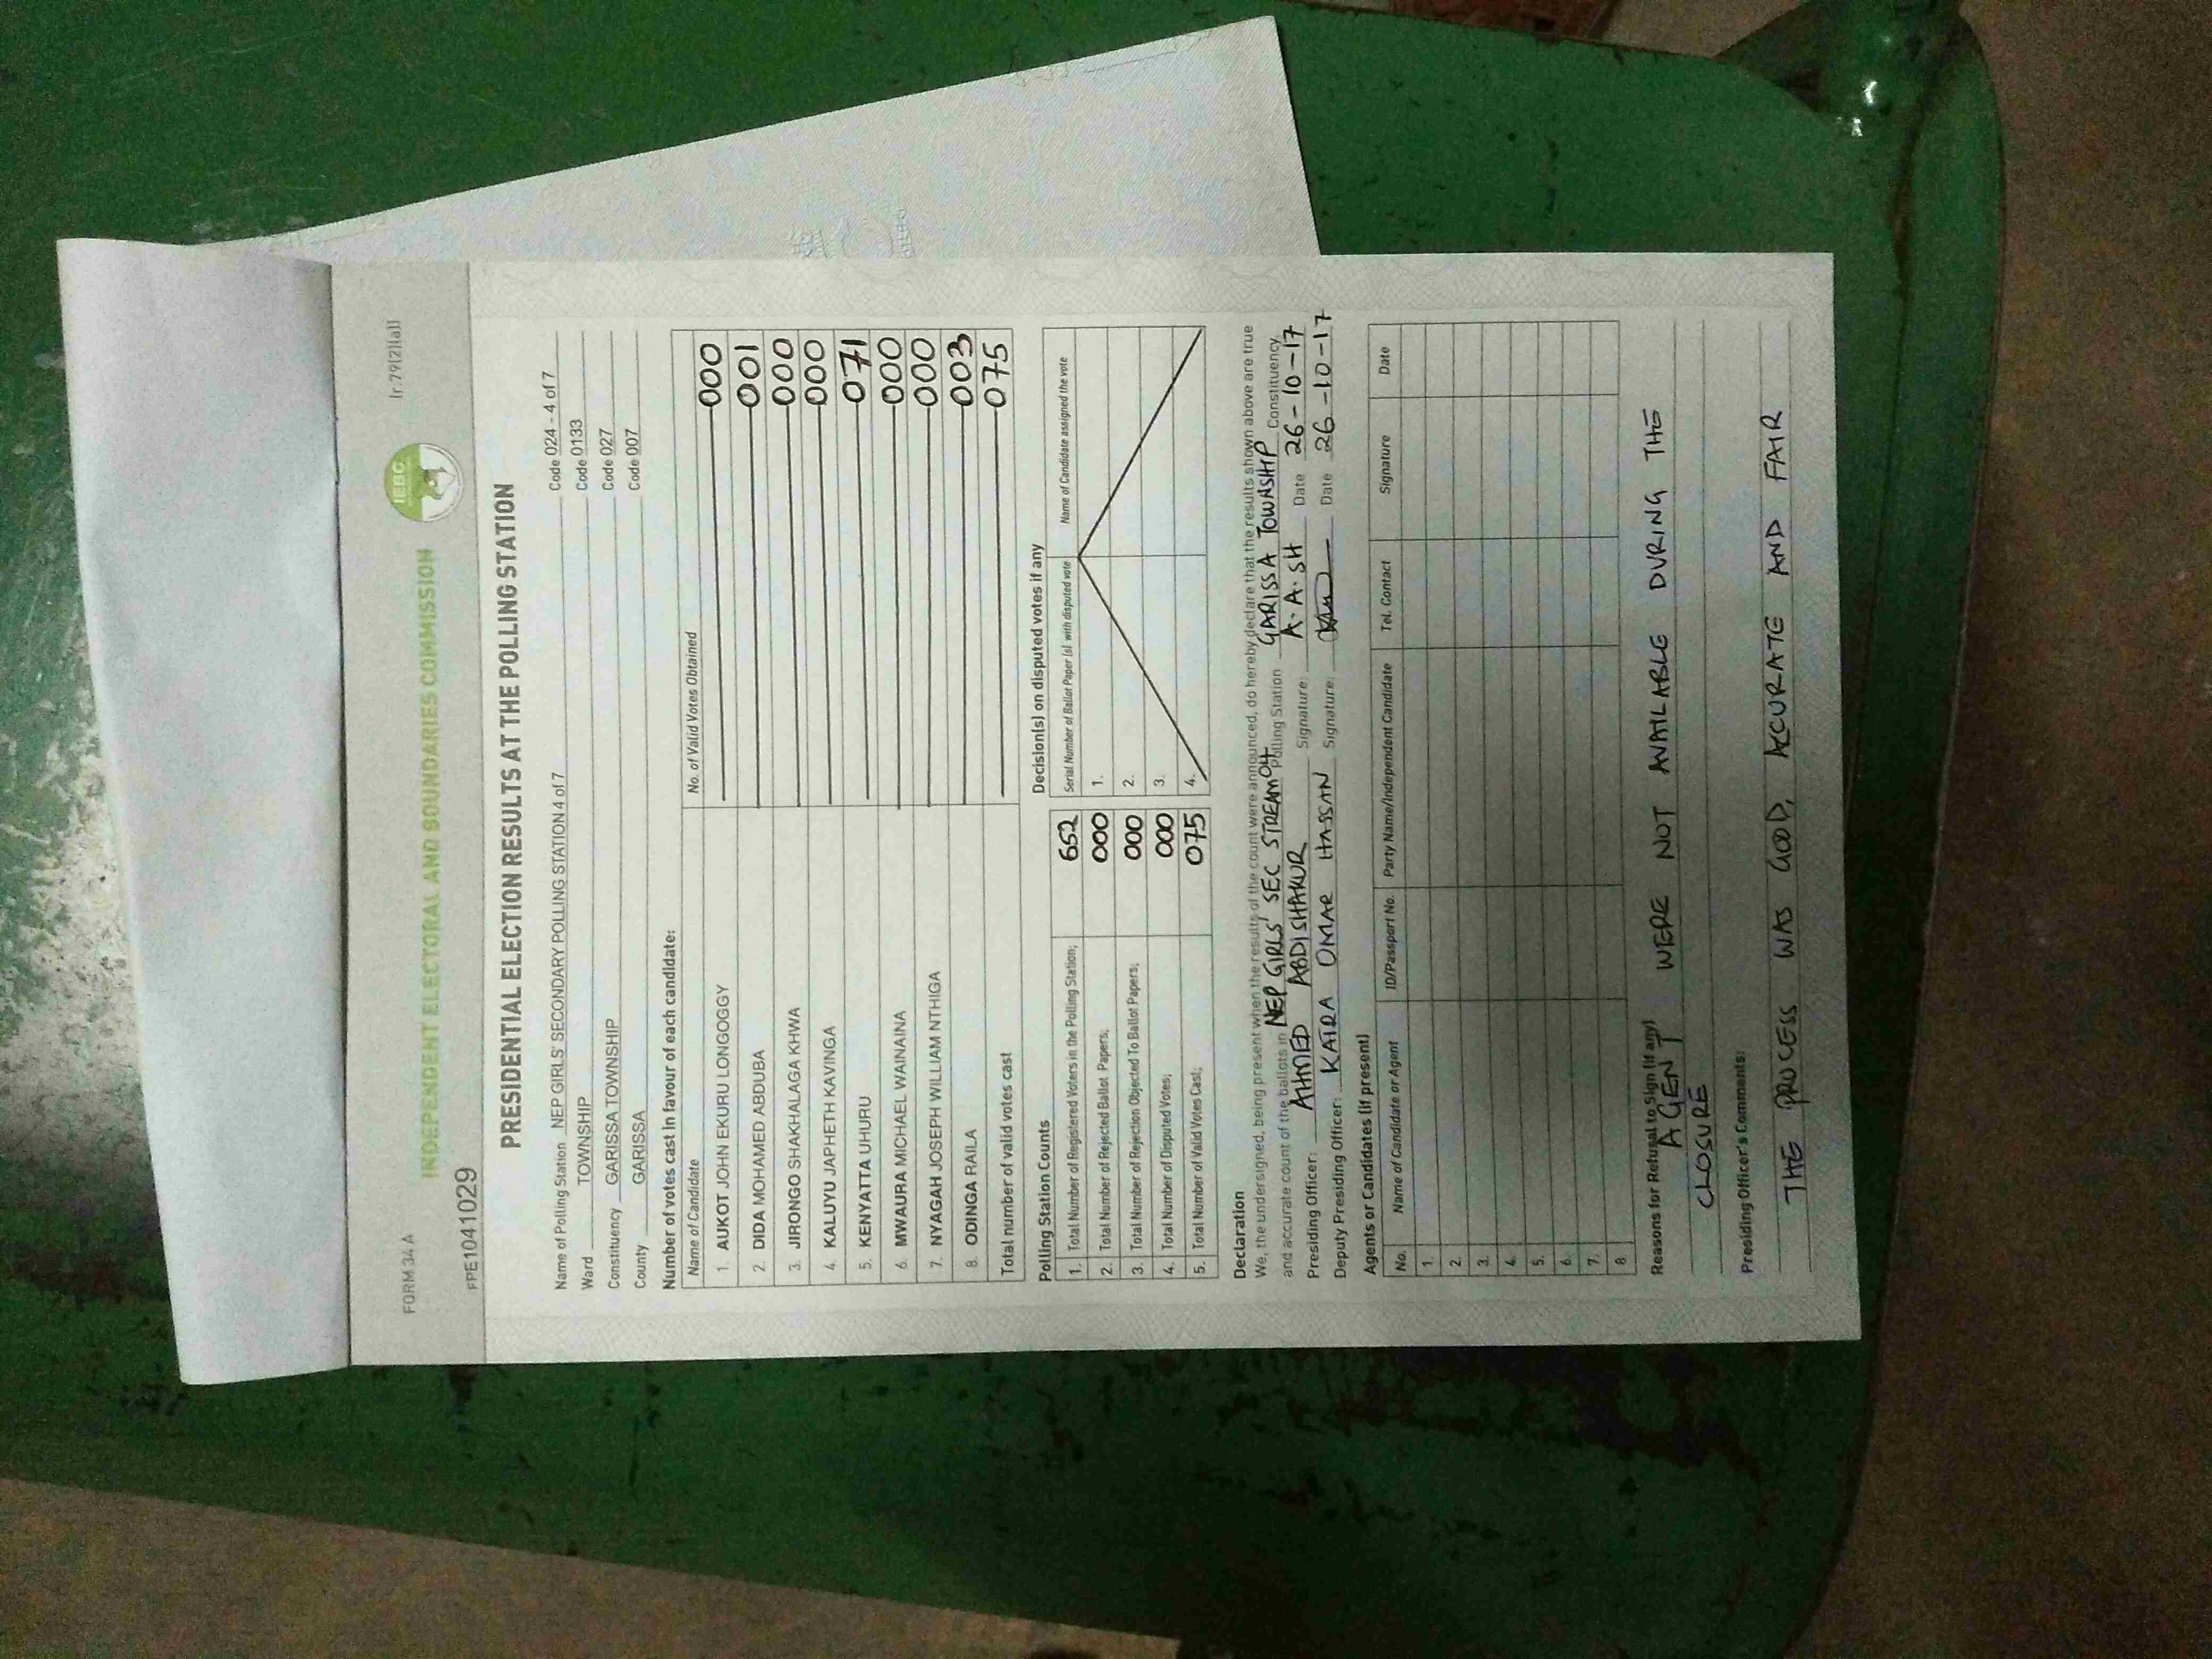 FORM 34 A
Ir.79(2)(a)]
INDEPENDENT ELECTORAL AND BOUNDARIES COMMISSION
IEBC
FPE1041029
PRESIDENTIAL ELECTION RESULTS AT THE POLLING STATION
Name of Polling Station NEP GIRLS' SECONDARY POLLING STATION 4 of 7 Code 024 - 4 of 7
Ward TOWNSHIP Code 0133
Constituency GARISSA TOWNSHIP Code 027
County GARISSA Code 007
Number of votes cast in favour of each candidate:
Name of Candidate No. of Valid Votes Obtained
1. AUKOT JOHN EKURU LONGOGGY 000
2. DIDA MOHAMED ABDUBA 001
3. JIRONGO SHAKHALAGA KHWA 000
4. KALUYU JAPHETH KAVINGA 000
5. KENYATTA UHURU 071
6. MWAURA MICHAEL WAINAINA 000
7. NYAGAH JOSEPH WILLIAM NTHIGA 000
8. ODINGA RAILA 003
Total number of valid votes cast 075
Polling Station Counts
1. Total Number of Registered Voters in the Polling Station; 652
2. Total Number of Rejected Ballot Papers; 000
3. Total Number of Rejection Objected To Ballot Papers; 000
4. Total Number of Disputed Votes; 000
5. Total Number of Valid Votes Cast; 075
Decision(s) on disputed votes if any
Serial Number of Ballot Paper (s) with disputed vote Name of Candidate assigned the vote
1.
2.
3.
4.
Declaration
We, the undersigned, being present when the results of the count were announced, do hereby declare that the results shown above are true
and accurate count of the ballots in NEP GIRLS' SEC STREAM 04 Polling Station GARISSA TOWNSHIP Constituency
Presiding Officer: AHMED ABDISHAKUR Signature: A.A.SH Date 26-10-17
Deputy Presiding Officer: KATRA OMAR HASSAN Signature: Date 26-10-17
Agents or Candidates (if present)
No. Name of Candidate or Agent ID/Passport No. Party Name/Independent Candidate Tel. Contact Signature Date
1.
2.
3.
4.
5.
6.
7.
8.
Reasons for Refusal to Sign (if any)
AGENT WERE NOT AVAILABLE DURING THE
CLOSURE
Presiding Officer's Comments:
THE PROCESS WAS GOOD, ACCURATE AND FAIR